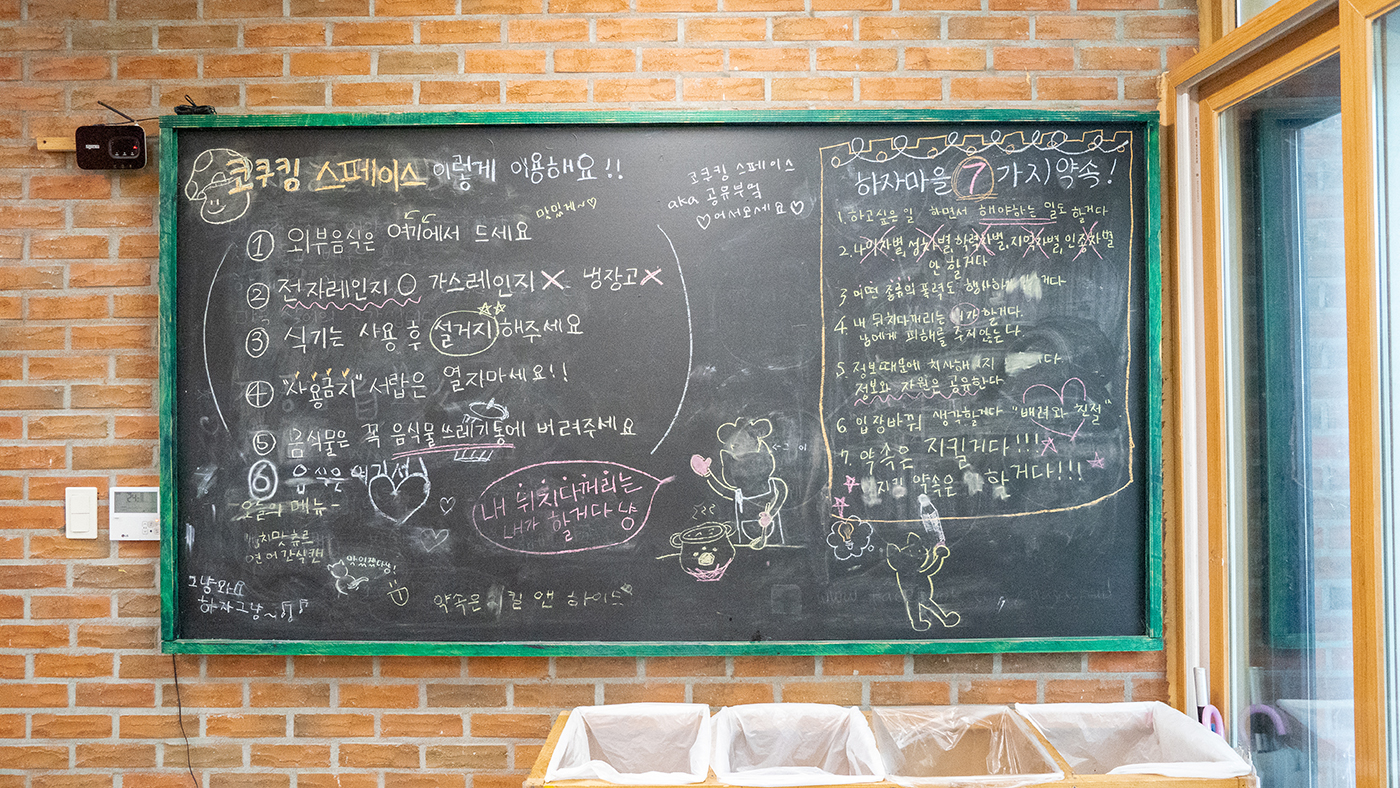 코쿠킹 스페이스 이렇게 이용해요!!
맛있게~♡
① 외부음식은 여기에서 드세요
② 전자레인지 O 가스레인지 X 냉장고 X
③ 식기는 사용 후 설거지 해주세요
④ "사용금지" 서랍은 열지마세요!!
⑤ 음식물은 꼭 음식물 쓰레기통에 버려주세요
⑥ 음식은
오늘의 메뉴-
연어간식캔
맛있겠다냥!
그냥와요
하자그냥~♫♪
내 뒤치다꺼리는
내가 할거다냥
약속은 킬 앤 하이드
코쿠킹 스페이스
aka 공유부엌
♡어서오세요♡
하자마을 7가지 약속!
1. 하고싶은 일 하면서 해야하는 일도 할거다
2. 나이차별, 성차별, 학력차별, 지역차별, 인종차별
안 할거다
3 어떤 종류의 폭력도 행사하 거다
4 내 뒤치다꺼리는 내가 할거다.
남에게 피해를 주지않는다
5 정보때문에 치사해 지 다.
정보와 자원은 공유한다.
6 입장바꿔 생각할거다 "배려와 친절"
7 약속은 지킬거다!!!
약속은 할 거다!!!